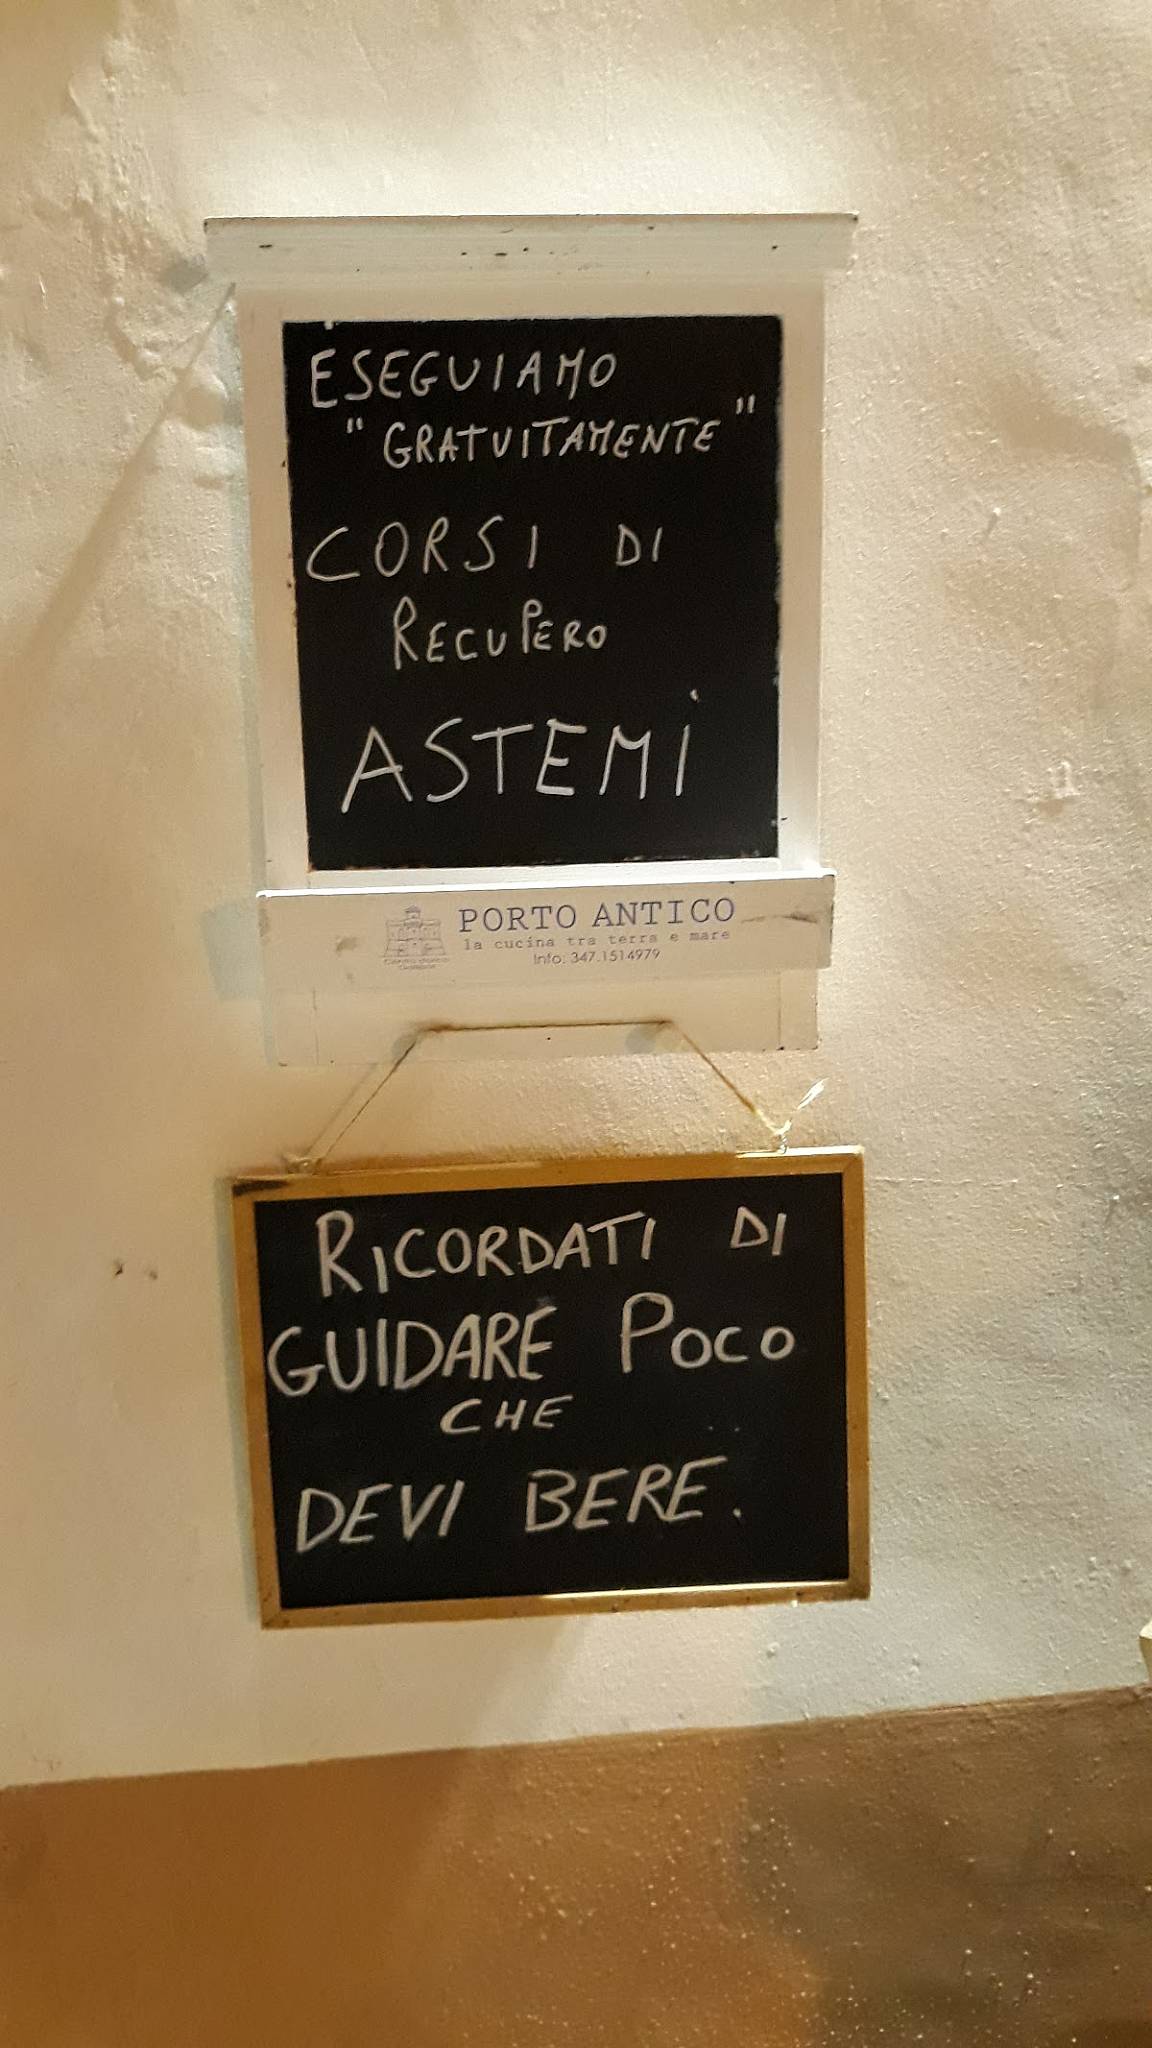 ESEGUIAMO
"GRATUITAMENTE"
CORSI DI
RECUPERO
ASTEMI
PORTO ANTICO
la cucina tra terra e mare
Info: 347.1514979
RICORDATI DI
GUIDARE POCO
CHE
DEVI BERE.